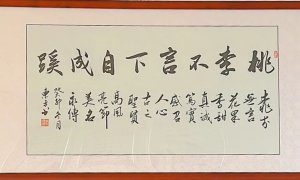 桃李不言下自成蹊
桃李
無言
花果
香甜
真誠
篤實
感召
人心
古之
聖賢
高風
亮節
美名
永傳